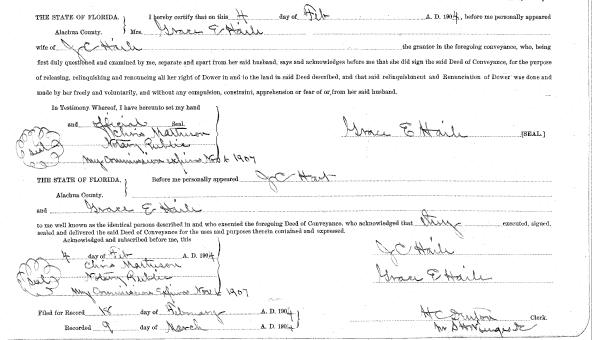 THE STATE OF FLORIDA. } I hereby certify that on this 4 day of Feb A. D. 1904, before me personally appeared
Alachua County. } Mrs. Grace E Haile
wife of J C Haile the grantor in the foregoing conveyance, who, being
first duly questioned and examined by me, separate and apart from her said husband, says and acknowledges before me that she did sign the said Deed of Conveyance, for the purpose
of releasing, relinquishing and renouncing all her right of Dower in and to the land in said Deed described, and that said relinquishment and Renunciation of Dower was done and
made by her freely and voluntarily, and without any compulsion, constraint, apprehension or fear of or from her said husband.
In Testimony Whereof, I have hereunto set my hand
and official Seal.
Chris Matheson Grace E Haile [SEAL.]
Seal Notary Public
My Commission expires Nov 6 1907
THE STATE OF FLORIDA. } Before me personally appeared J C
Alachua County. }
and Grace E Haile
to me well known as the identical persons described in and who executed the foregoing Deed of Conveyance, who acknowledged that they executed, signed,
sealed and delivered the said Deed of Conveyance for the uses and purposes therein contained and expressed.
Acknowledged and subscribed before me, this
4 day of Feb A. D. 1904 J C Haile
Chris Matheson
Seal Notary Public Grace E Haile
My Commission Expires Nov 6 1907
Filed for Record 18 day of February A. D. 1904 H C Clerk.
Recorded 9 day of March A. D. 1904